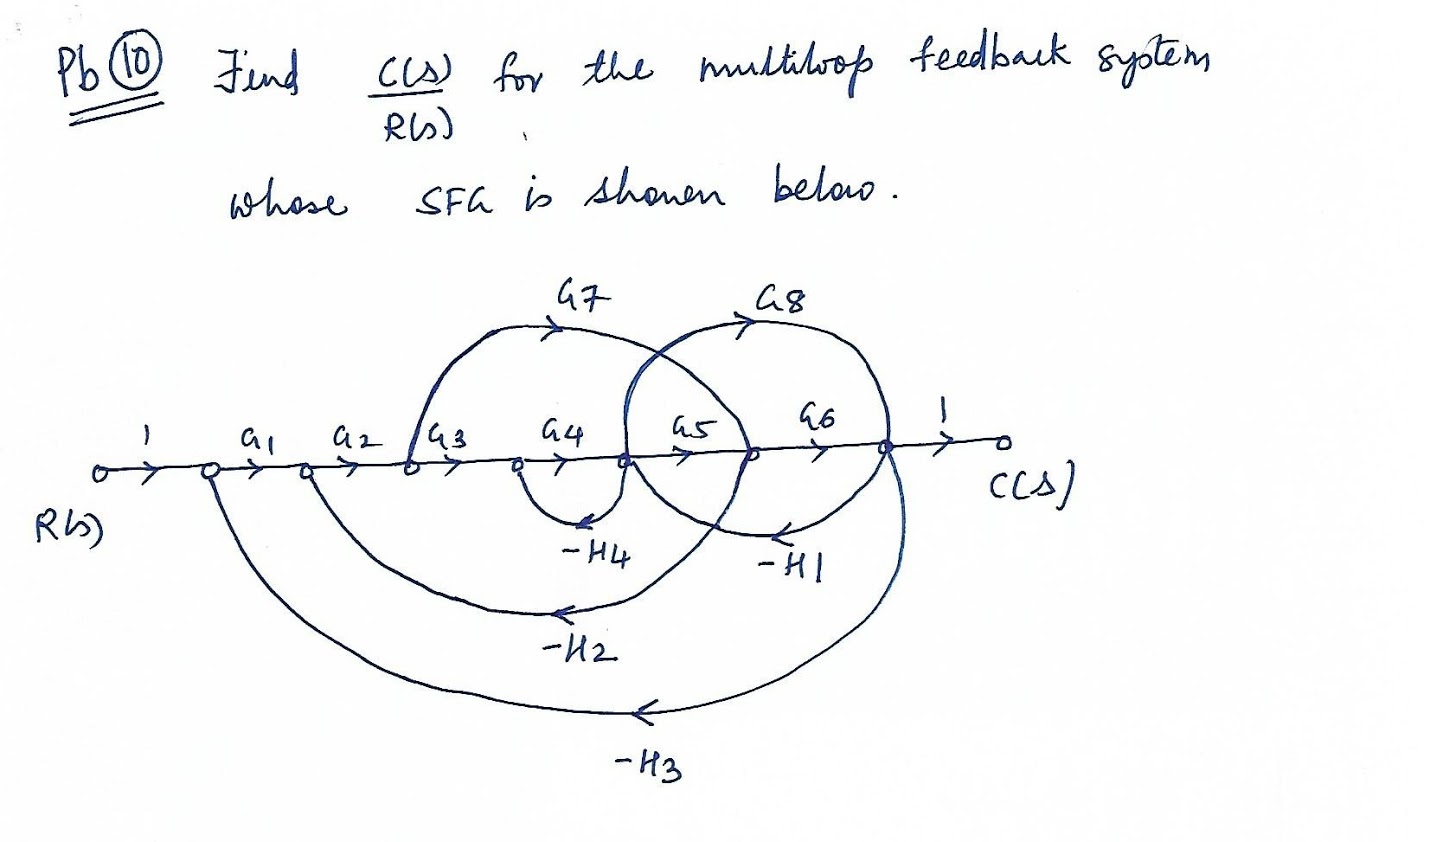 Pb 10 Find C(s) for the multiloop feedback system
R(s)
whose SFG is shown below.
G7 G8
1 G1 G2 G3 G4 G5 G6 1
R(s) C(s)
-H4 -H1
-H2
-H3